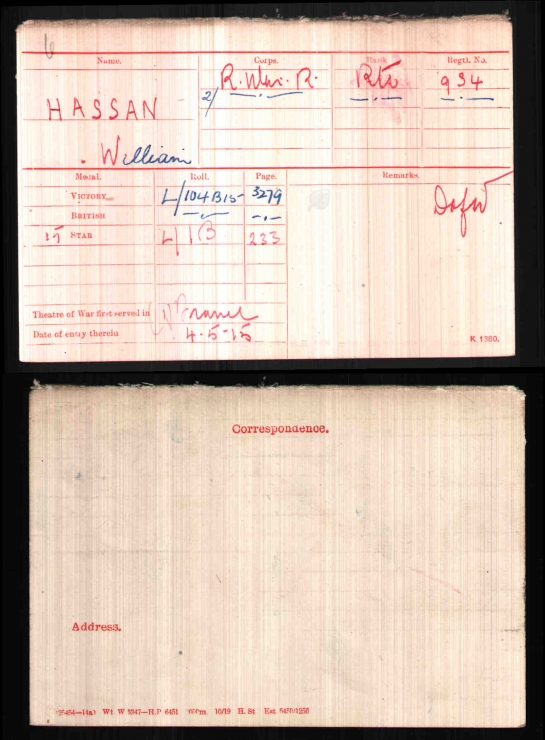 Name. Corps. Rank Regtl. No.
HASSAN 2/ R. War. R. Pte 934
William
Medal. Roll. Page. Remarks.
VICTORY L/104B15 3279 D of W
BRITISH -"- -"-
15 STAR L/1B 233
Theatre of War first served in (1) France
Date of entry therein 4.5.15
K 1380.
Correspondence.
Address.
Wt W 5347—H.P 6451 10/19 H. St